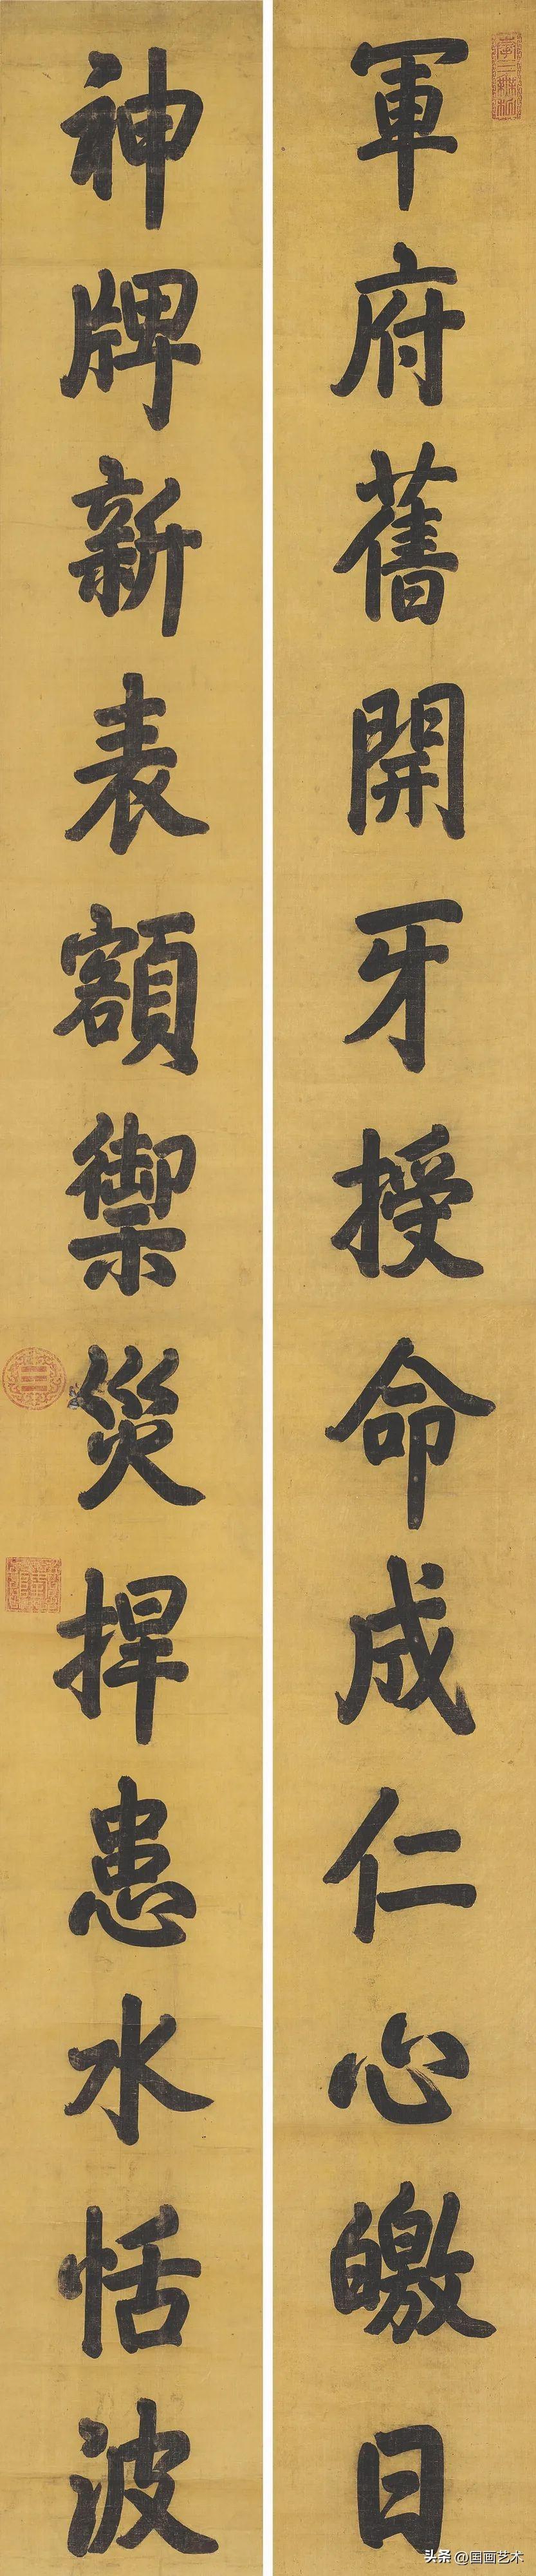 軍府舊開牙授命成仁心皦日
神牌新表額禦災捍患水恬波
头条 @国画艺术